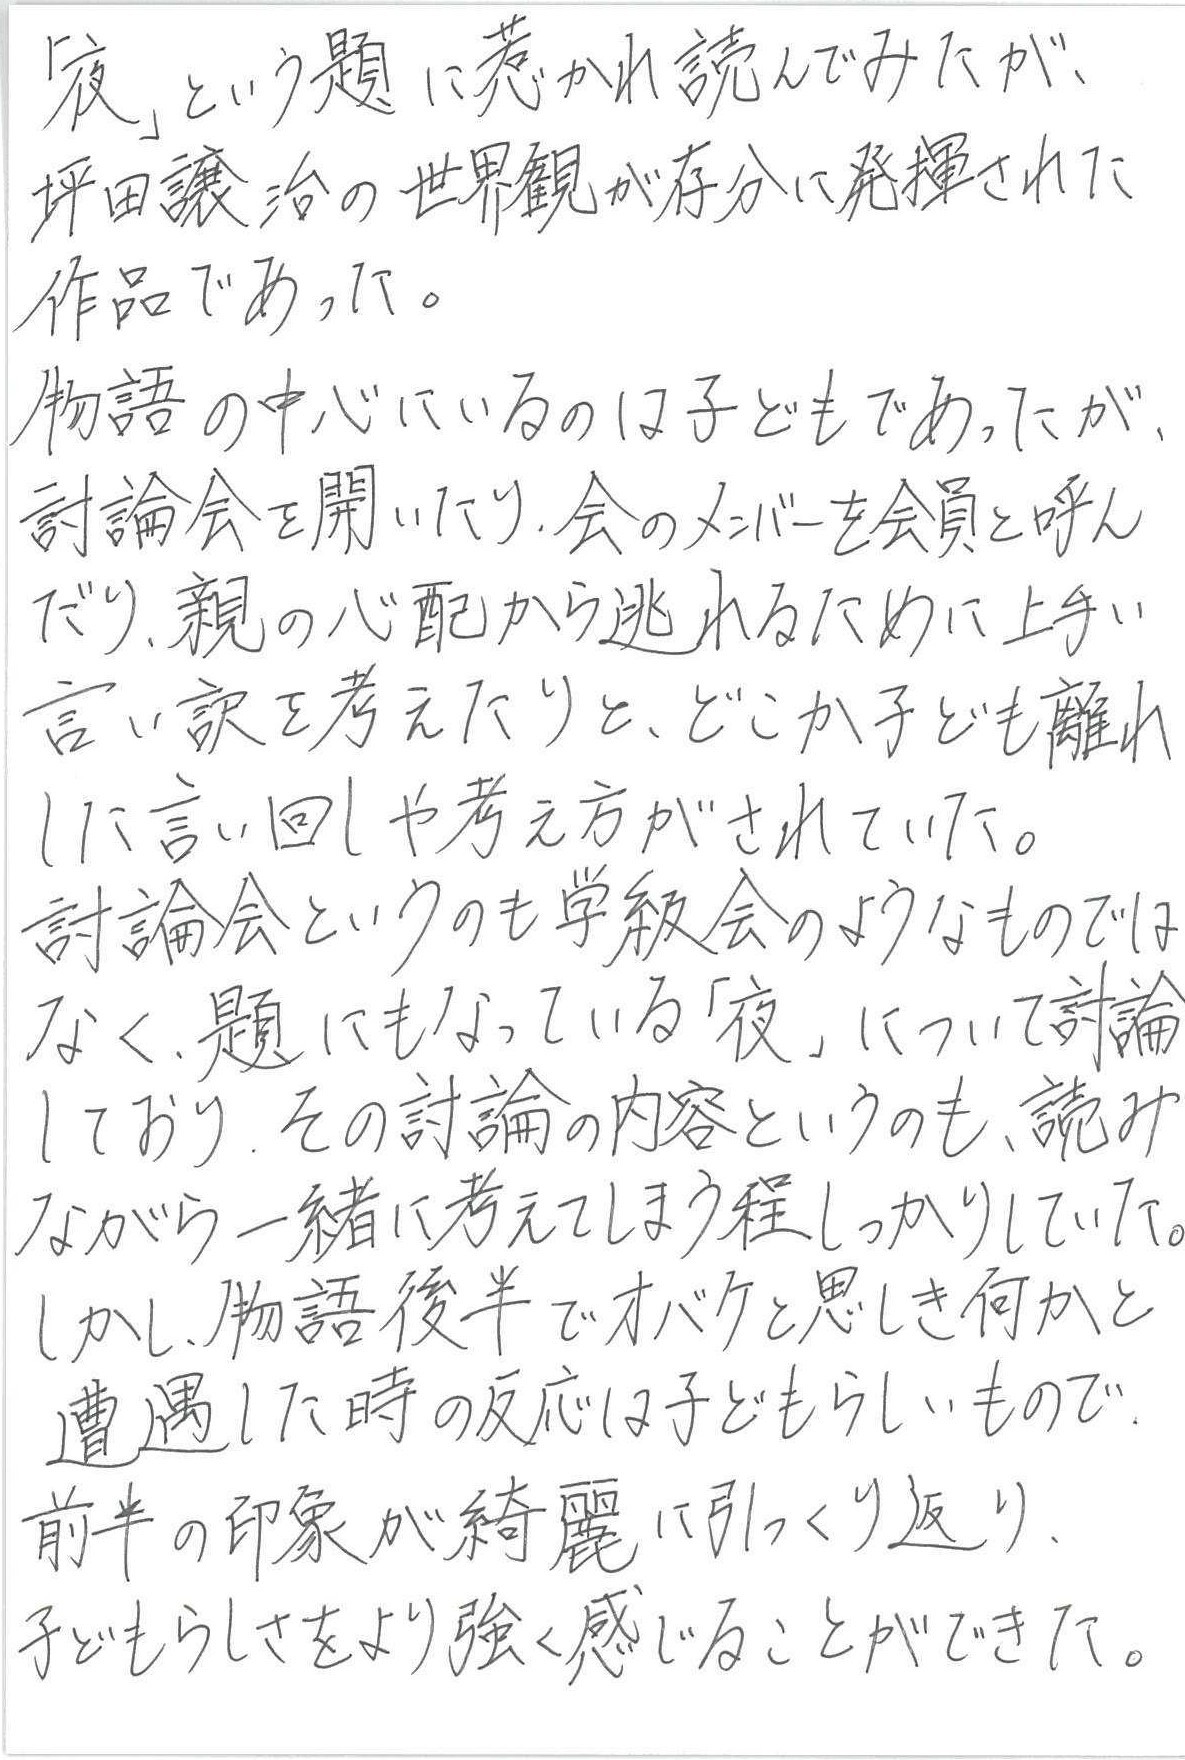 「夜」という題に惹かれ読んでみたが、
坪田譲治の世界観が存分に発揮された
作品であった。
物語の中心にいるのは子どもであったが、
討論会を開いたり、会のメンバーを会員と呼ん
だり、親の心配から逃れるために上手い
言い訳を考えたりと、どこか子ども離れ
した言い回しや考え方がされていた。
討論会というのも学級会のようなものでは
なく、題にもなっている「夜」について討論
しており、その討論の内容というのも、読み
ながら一緒に考えてしまう程しっかりしていた。
しかし、物語後半でオバケと思しき何かと
遭遇した時の反応は子どもらしいもので、
前半の印象が綺麗に引っくり返り、
子どもらしさをより強く感じることができた。